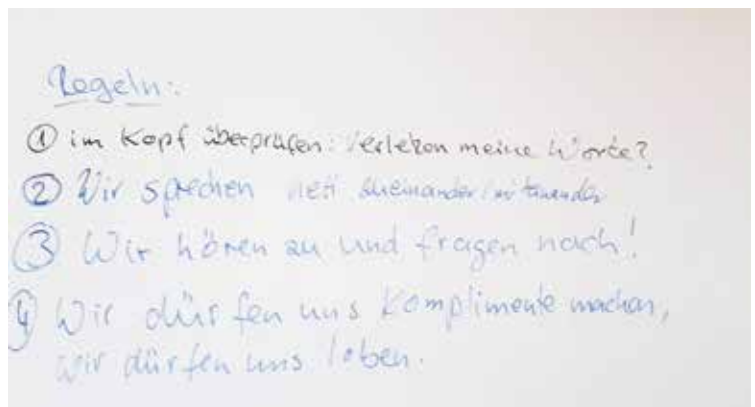 Regeln:
① im Kopf überprüfen: verletzen meine Worte?
② Wir sprechen nett zueinander/miteinander
③ Wir hören zu und fragen nach!
④ Wir dürfen uns Komplimente machen,
wir dürfen uns loben.